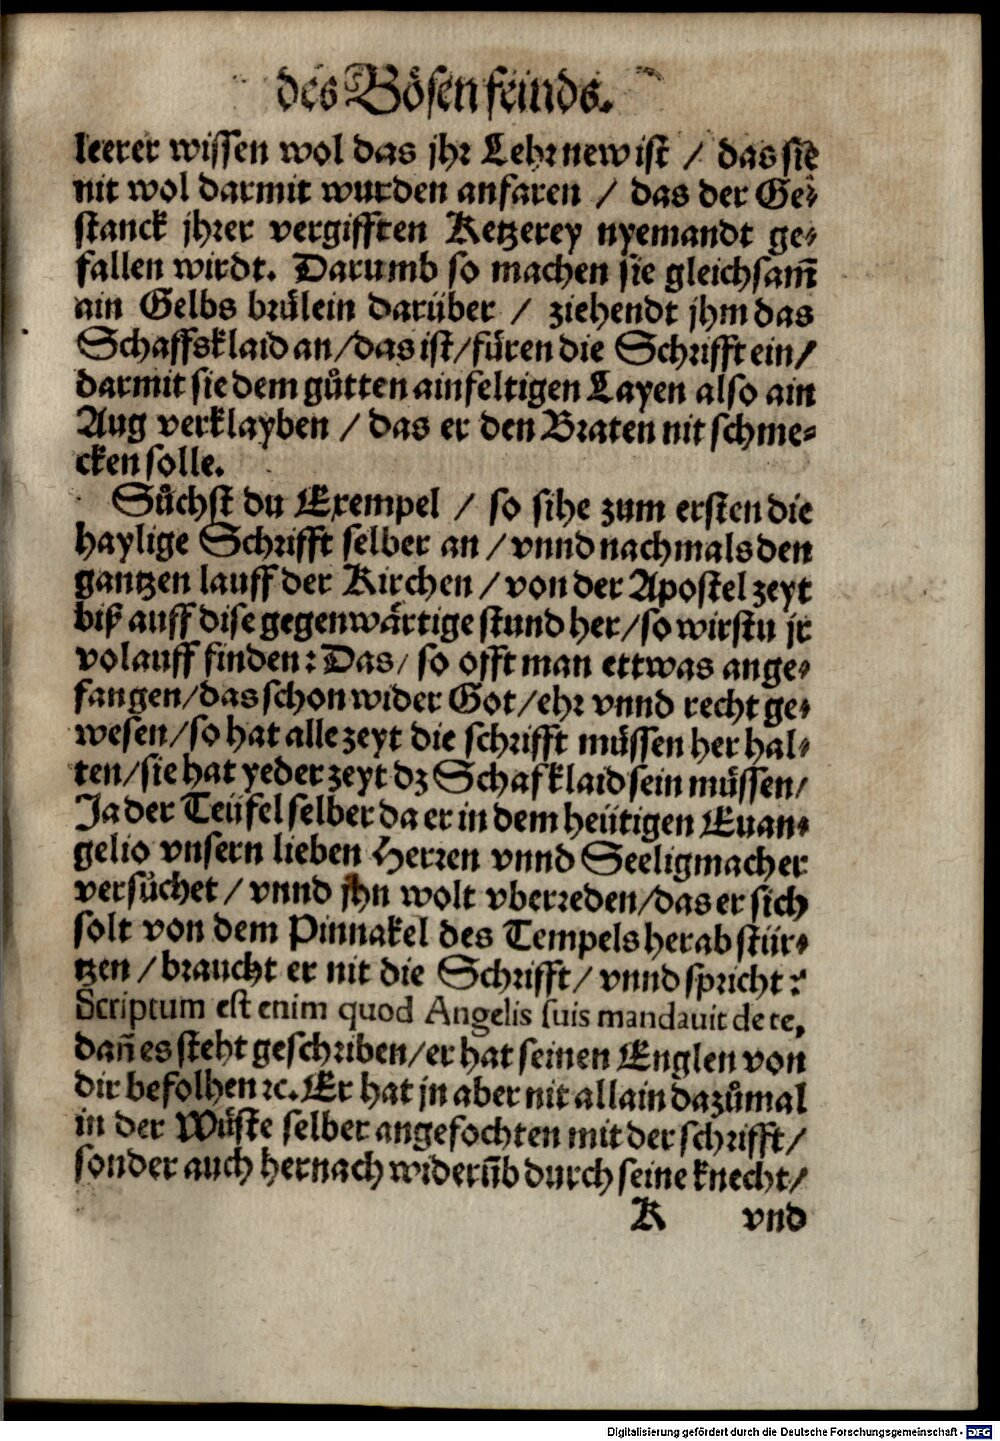 des Bösen feinds.
leerer wissen wol das jhr Lehr new ist / das sie
nit wol darmit wurden anfaren / das der Ge⸗
stanck jhrer vergifften Ketzerey nyemandt ge⸗
fallen wirdt. Darumb so machen sie gleichsam̅
ain Gelbs brüͤlein darüber / ziehendt jhm das
Schaffsklaid an / das ist / fuͤren die Schrifft ein /
darmit sie dem guͤtten ainfeltigen Layen also ain
Aug verklayben / das er den Braten nit schme⸗
cken solle.
Suͤchst du Exempel / so sihe zum ersten die
haylige Schrifft selber an / vnnd nachmals den
gantzen lauff der Kirchen / von der Apostel zeyt
biß auff dise gegenwaͤrtige stund her / so wirstu jr
vol auff finden: Das / so offt man ettwas ange⸗
fangen / das schon wider Got / ehr vnnd recht ge⸗
wesen / so hat alle zeyt die schrifft muͤssen her hal⸗
ten / sie hat yeder zeyt dz Schafklaid sein muͤssen /
Ja der Teüfel selber da er in dem heütigen Euan⸗
gelio vnsern lieben Herren vnnd Seeligmacher
versuͤchet / vnnd jhn wolt vberreden / das er sich
solt von dem Pinnakel des Tempels herab stür⸗
tzen / braucht er nit die Schrifft / vnnd spricht:
Scriptum est enim quod Angelis suis mandauit de te,
dan̅ es steht geschriben / er hat seinen Englen von
dir befolhen ꝛc. Er hat jn aber nit allain dazuͤmal
in der Wuͤste selber angefochten mit der schrifft /
sonder auch hernach widerum̅b durch seine knecht /
K vnd
Digitalisierung gefördert durch die Deutsche Forschungsgemeinschaft - DFG